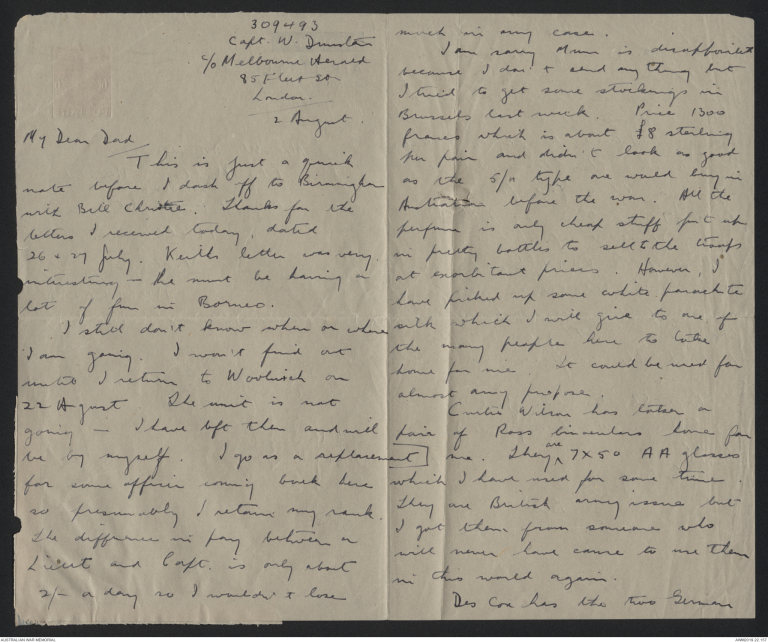 309493
Capt. W. Dunstan
c/o Melbourne Herald
85 Fleet St
London.
2 August.
My Dear Dad
This is just a quick
note before I dash off to Birmingham
with Bill Christie. Thanks for the
letters I received today, dated
26 & 27 July. Keith's letter was very
interesting - he must be having a
lot of fun in Borneo.
I still don't know when or where
I am going. I won't find out
until I return to Woolwich on
22 August The unit is not
going - I have left them and will
be by myself. I go as a replacement
for some officer coming back here
so presumably I retain my rank.
The difference in pay between a
Lieut and Capt. is only about
2/- a day so I wouldn't lose
much in any case.
I am sorry Mum is disappointed
because I don't send anything but
I tried to get some stockings in
Brussels last week. Price 1300
francs which is about £8 sterling
per pair and didn't look as good
as the 5/11 type one would buy in
Australia before the war. All the
perfume is only cheap stuff put up
in pretty bottles to sell to the troops
at exorbitant prices. However, I
have picked up some white parachute
silk which I will give to one of
the many people here to take
home for me. It could be used for
almost any purpose.
Curtis Wilson has taken a
pair of Ross binoculars home for
me. They are 7x50 AA glasses
which I have used for some time.
They are British army issue but
I got them from someone who
will never have cause to use them
in this world again.
Des Cox has the two German
AUSTRALIAN WAR MEMORIAL